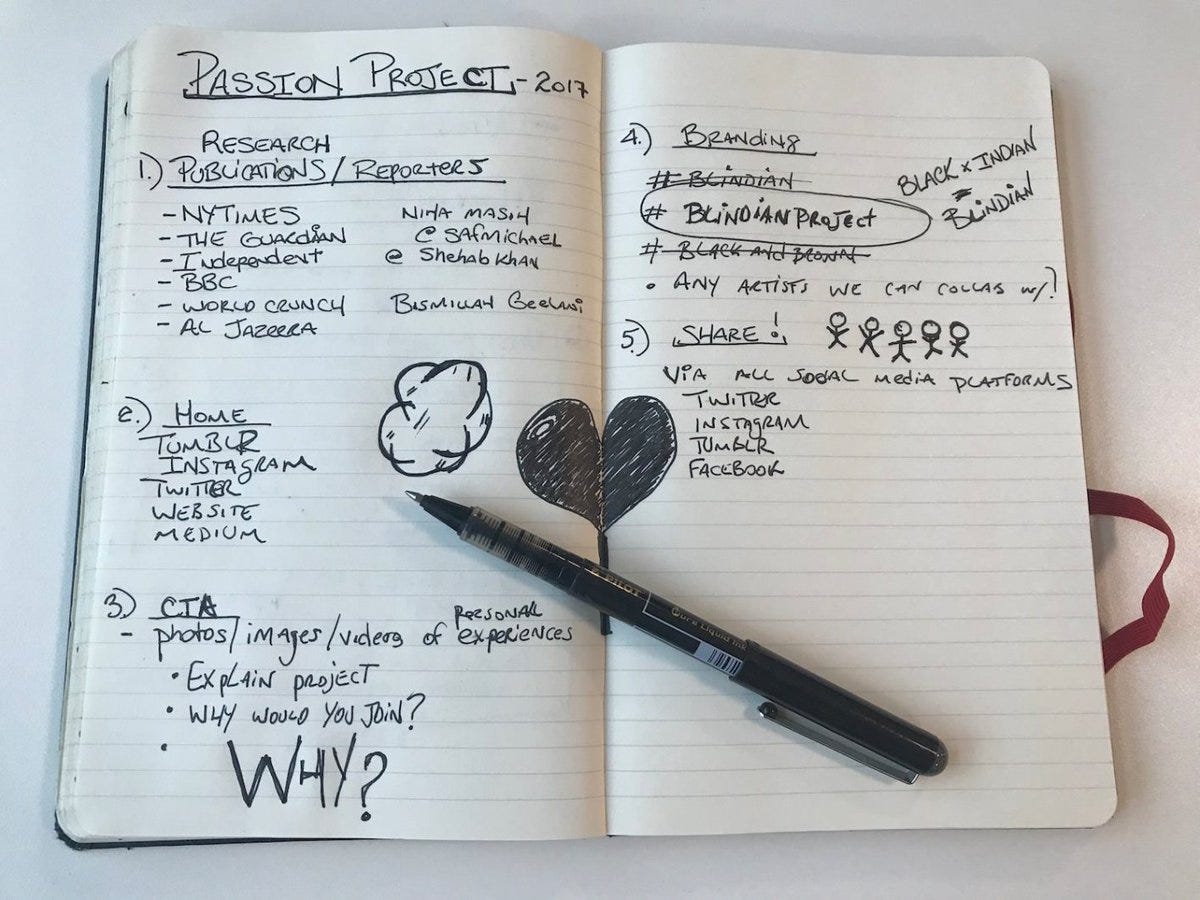 PASSION PROJECT - 2017
RESEARCH
1.) PUBLICATIONS / REPORTERS
- NYTIMES NIHA MASIH
- THE GUARDIAN @ SAFMICHAEL
- Independent @ Shehab Khan
- BBC
- WORLD CRUNCH BISMILLAH GEELANI
- AL JAZEERA
2.) HOME
TUMBLR
INSTAGRAM
TWITTER
WEBSITE
MEDIUM
3.) CTA
- photos/images/videos of PERSONAL experiences
• EXPLAIN PROJECT
• WHY WOULD YOU JOIN?
•
WHY?
4.) BRANDING
# BLINDIAN
# BLINDIANPROJECT
# BLACK AND BROWN
BLACK x INDIAN
=
BLINDIAN
• ANY ARTISTS WE CAN COLLAB w/?
5.) SHARE!
VIA ALL SOCIAL MEDIA PLATFORMS
TWITTER
INSTAGRAM
TUMBLR
FACEBOOK
PILOT
Pure Liquid Ink